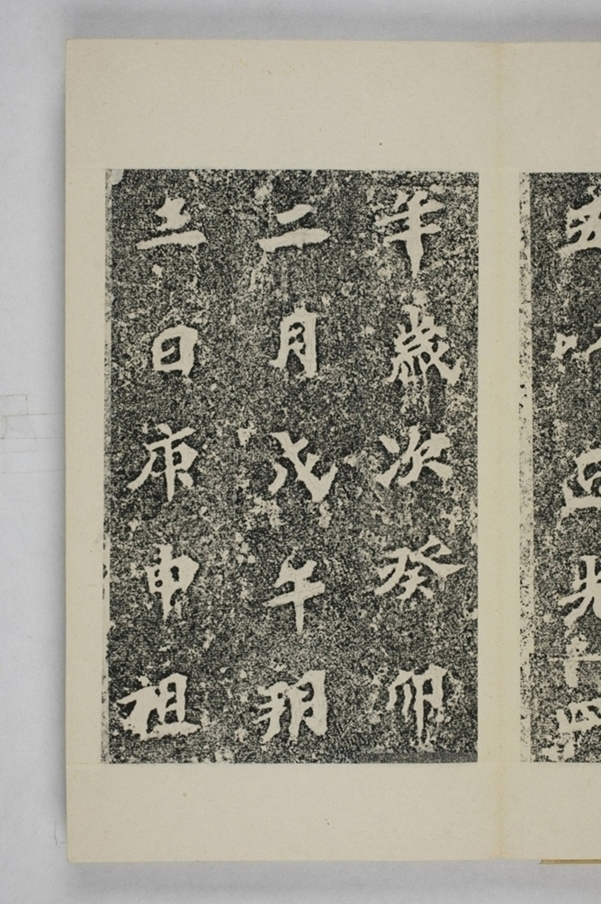 正光四
年歲次癸卯
二月戊午朔
三日庚申祖